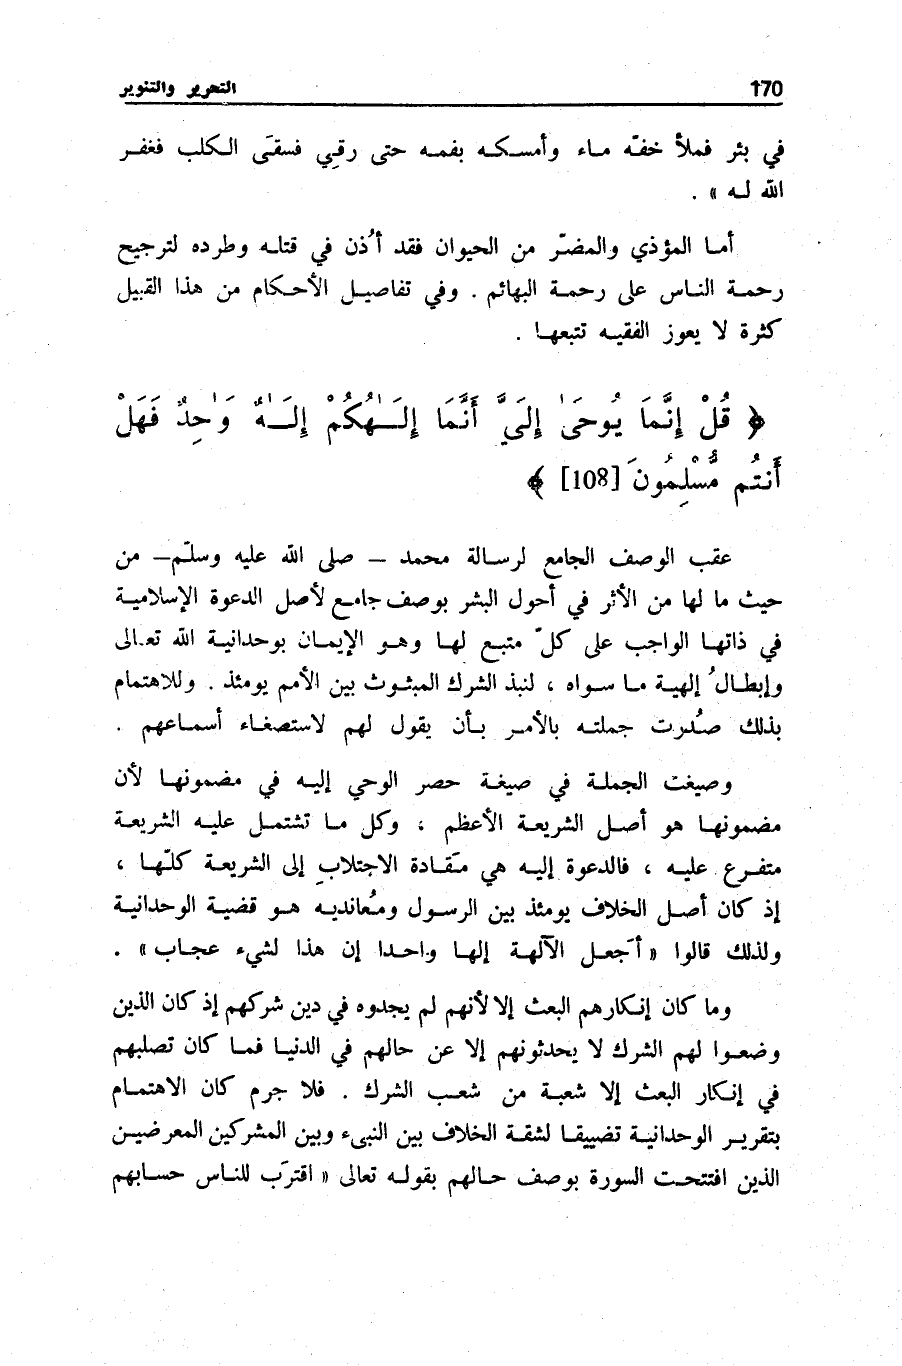 170 التحرير والتنوير
في بئر فملأ خفّه ماء وأمسكه بفمه حتى رقِي فسقَى الكلب فغفر
الله له » .
أما المؤذي والمضرّ من الحيوان فقد أُذن في قتله وطرده لترجيح
رحمة الناس على رحمة البهائم . وفي تفاصيل الأحكام من هذا القبيل
كثرة لا يعوز الفقيه تتبعها .
﴿ قُلْ إِنَّمَا يُوحَىٰ إِلَيَّ أَنَّمَا إِلَـٰهُكُمْ إِلَـٰهٌ وَٰحِدٌ فَهَلْ
أَنتُم مُّسْلِمُونَ [108] ﴾
عقب الوصف الجامع لرسالة محمد – صلى الله عليه وسلّم – من
حيث ما لها من الأثر في أحول البشر بوصف جامع لأصل الدعوة الإسلامية
في ذاتها الواجب على كلّ متبع لها وهو الإيمان بوحدانية الله تعالى
وإبطالُ إلهية ما سواه ، لنبذ الشرك المبثوث بين الأمم يومئذ . وللاهتمام
بذلك صُدرت جملته بالأمر بأن يقول لهم لاستصغاء أسماعهم .
وصيغت الجملة في صيغة حصر الوحي إليه في مضمونها لأن
مضمونها هو أصل الشريعة الأعظم ، وكل ما تشتمل عليه الشريعة
متفرع عليه ، فالدعوة إليه هي مَقادة الاجتلابِ إلى الشريعة كلّها ،
إذ كان أصل الخلاف يومئذ بين الرسول ومُعانديه هو قضية الوحدانية
ولذلك قالوا « أَجعل الآلهة إلها واحدا إن هذا لشيء عجاب» .
وما كان إنكارهم البعث إلا لأنهم لم يجدوه في دين شركهم إذ كان الذين
وضعوا لهم الشرك لا يحدثونهم إلا عن حالهم في الدنيا فما كان تصلبهم
في إنكار البعث إلا شعبة من شعب الشرك . فلا جرم كان الاهتمام
بتقرير الوحدانية تضييقا لشقة الخلاف بين النبيء وبين المشركين المعرضين
الذين افتتحت السورة بوصف حالهم بقوله تعالى « اقترَب للناس حسابهم